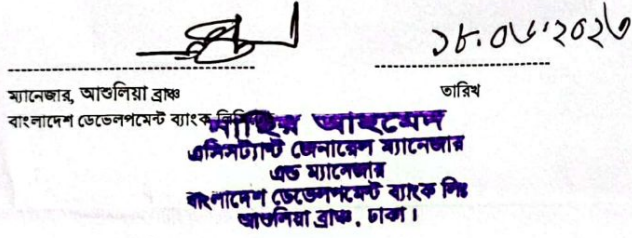 ১৮.০৬.২০২৩
ম্যানেজার, আশুলিয়া ব্রাঞ্চ
তারিখ
বাংলাদেশ ডেভেলপমেন্ট ব্যাংক লিমিটেড
আহমেদ
এসিসট্যান্ট জেনারেল ম্যানেজার
এন্ড ম্যানেজার
বাংলাদেশ ডেভেলপমেন্ট ব্যাংক লিঃ
আশুলিয়া ব্রাঞ্চ, ঢাকা।